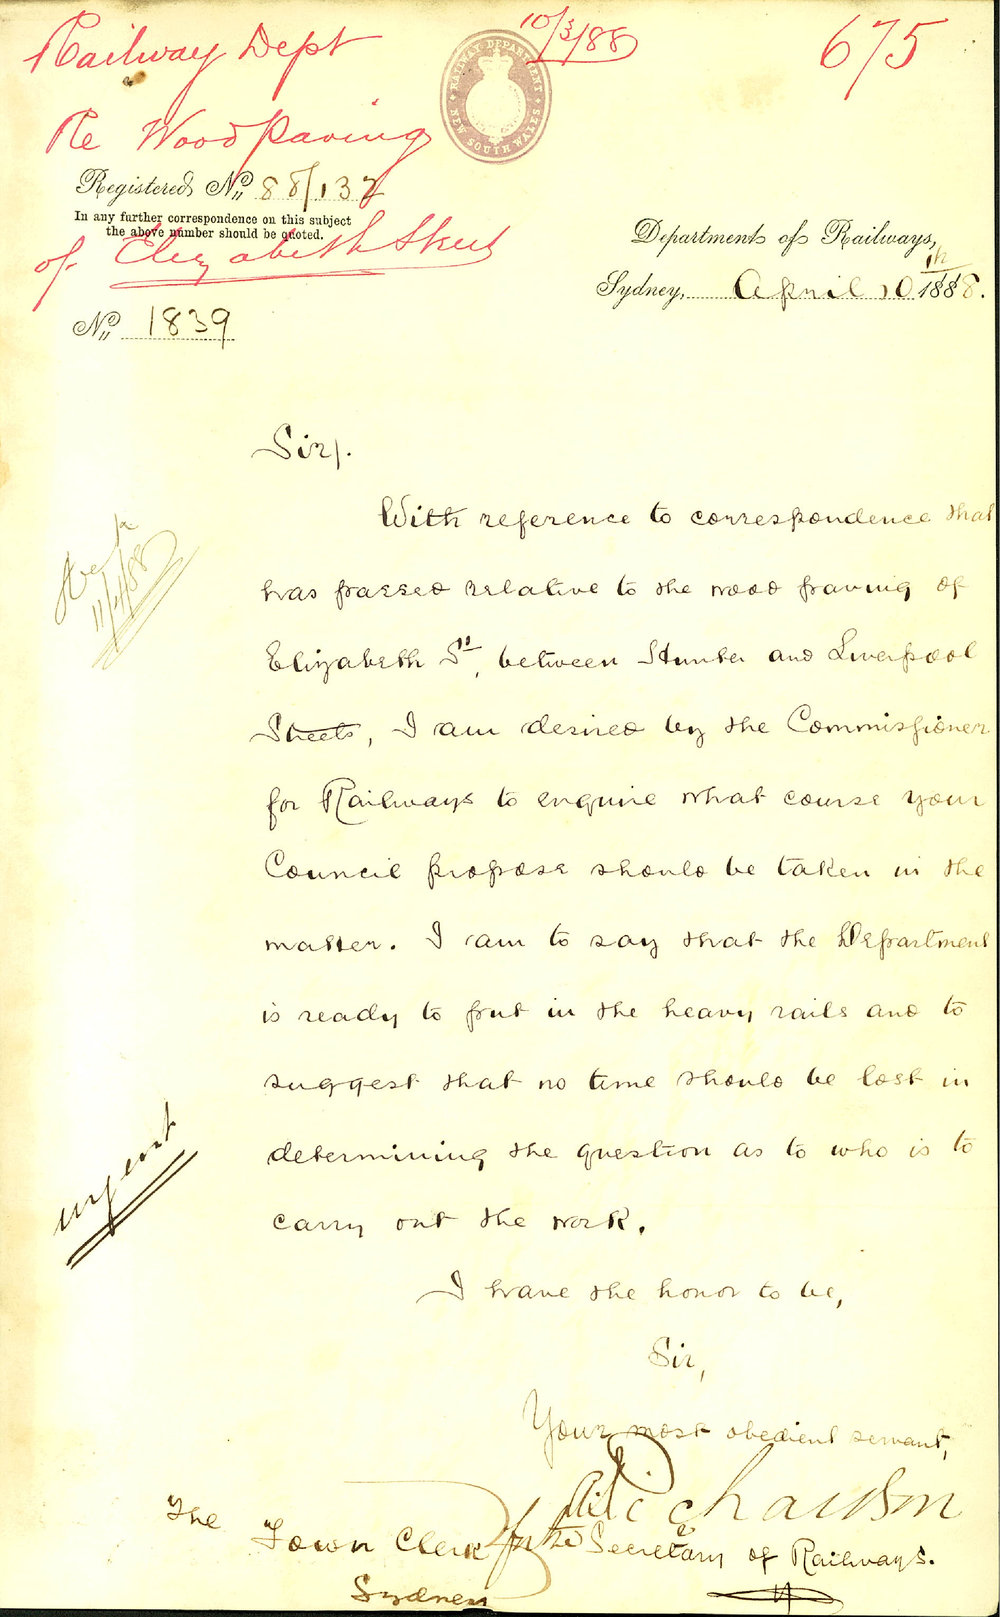 Railway Dept
10/3/88
675
RAILWAY DEPARTMENT
NEW SOUTH WALES
Re Wood paving
Registered No. 88/132
In any further correspondence on this subject
the above number should be quoted.
of Elizabeth Street
Department of Railways,
Sydney, April 10th 1888.
No. 1839
Sir/.
With reference to correspondence that
has passed relative to the wood paving of
Elizabeth St, between Hunter and Liverpool
Streets, I am desired by the Commissioner
for Railways to enquire what course your
Council propose should be taken in the
matter. I am to say that the Department
is ready to put in the heavy rails and to
suggest that no time should be lost in
determining the question as to who is to
carry out the work.
11/4/88
urgent
I have the honor to be,
Sir,
Your most obedient servant,
Richardson
for the Secretary of Railways.
The
Town Clerk
Sydney